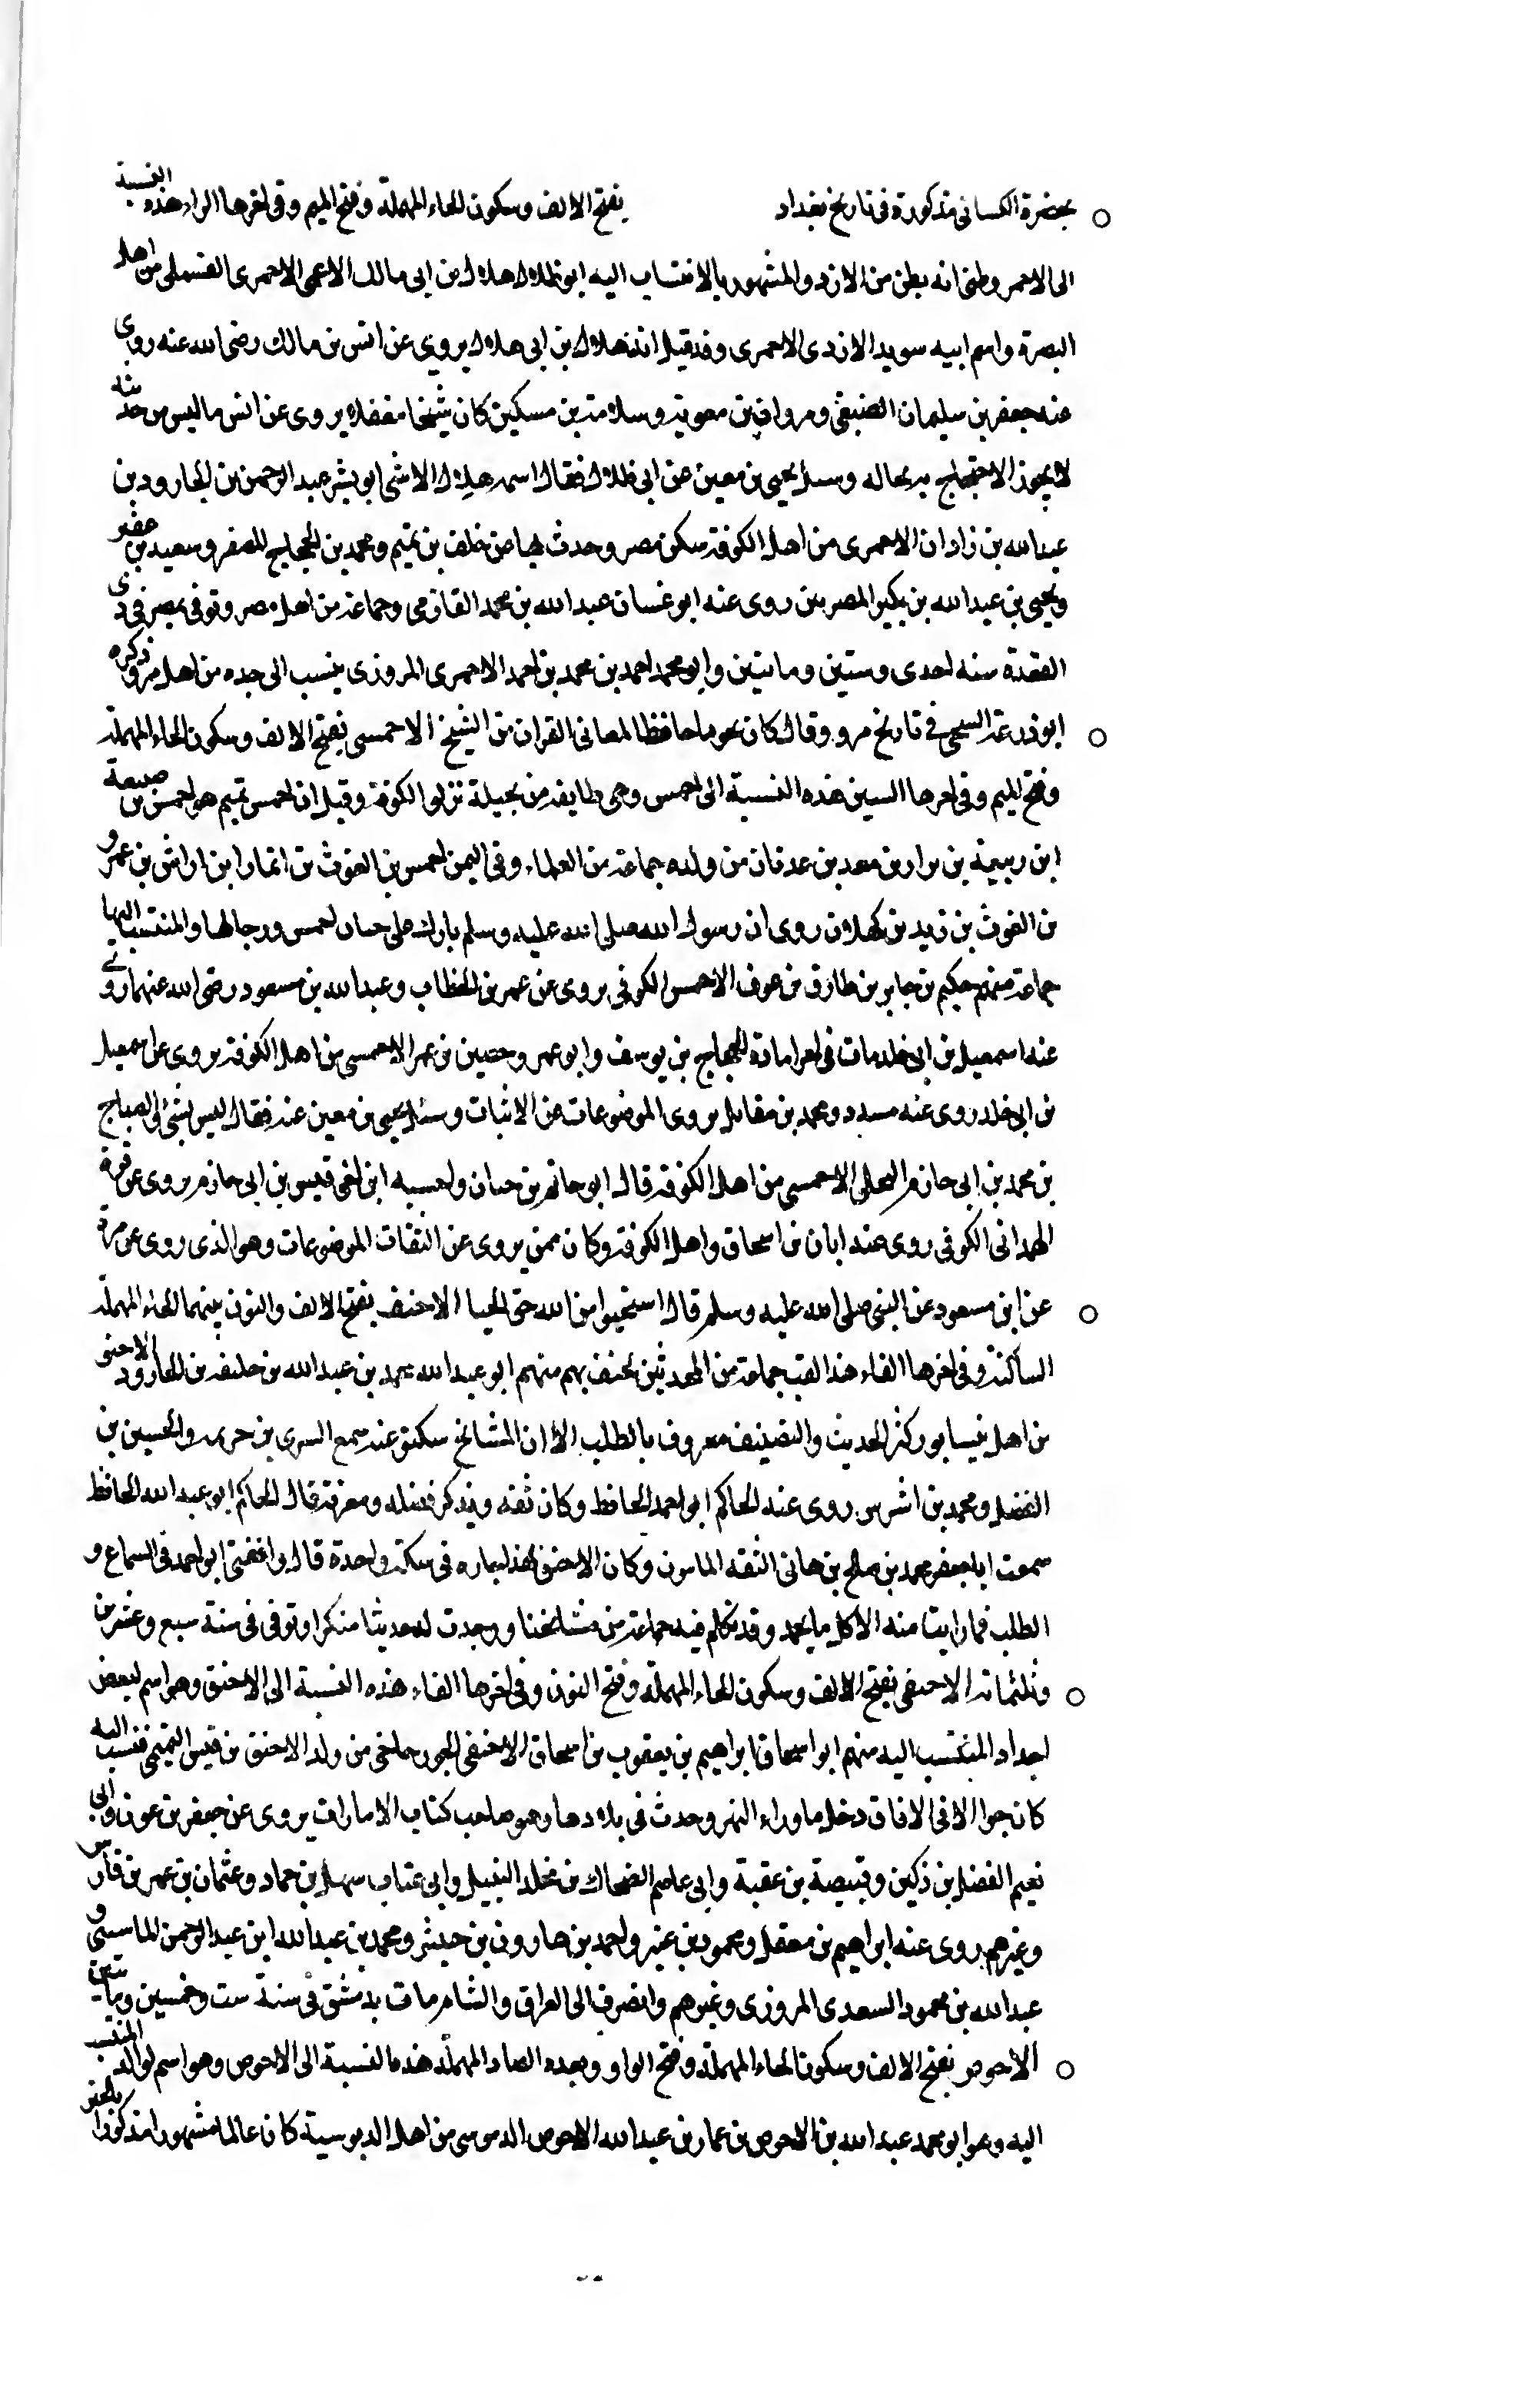 بحضرة الكسائى مذكورة فى تاريخ بغداد بفتح الالف وسكون الحاء المهملة وفتح الميم وفى اخرها الراء هذه النسبة
الى الاحمر وظنى انه بطن من الازد والمشهور بالانتساب اليه ابو ظلال هلال ابن ابى مالك الاعمى الاحمرى القسملى من اهل
البصرة واسم ابيه سويد الازدى الاحمرى وقد قيل انه هلال ابن ابى هلال يروى عن انس بن مالك رضى الله عنه روى
عنه جعفر بن سليمان الضبعى ومروان بن معوية وسلام بن مسكين كان شيخا مغفلا يروى عن انس ما ليس من حديثه
لا يجوز الاحتجاج به بحاله وسئل يحيى بن معين عن ابى ظلال فقال اسمه هلال لا شى ابو بشر عبد الرحمن بن الجارود بن
عبد الله بن زادان الاحمرى من اهل الكوفة سكن مصر وحدث بها عن خلف بن تميم ومحمد بن الحجاج المصفر وسعيد بن عفير
ويحيى بن عبد الله بن بكير المصريين روى عنه ابو غسان عبد الله بن محمد القلزمى وجماعة من اهل مصر وتوفى بمصر فى ذى
القعدة سنه احدى وستين وماتين وابو محمد احمد بن محمد بن احمد الاحمرى المروزى ينسب الى جده من اهل مرو ذكره
ابو زرعة السنجى فى تاريخ مرو وقال كان نحويا حافظا لمعانى القران من الشيخ الاحمسى بفتح الالف وسكون الحاء المهملة
وفتح الميم وفى اخرها السين هذه النسبة الى احمس وهى طايفة من بجيلة نزلوا الكوفة وقيل ان احمس تميم هو احمس بن ضبيعة
ابن ربيعة بن نزار بن معد بن عدنان من ولده جماعة من العلماء وفى اليمن احمس بن الغوث بن انمار ابن اراش بن عمرو
بن الغوث بن زيد بن كهلان روى ان رسول الله صلى الله عليه وسلم بارك على حسان احمس ورجالها والمنتسب اليها
جماعة منهم حكيم بن جابر بن طارق بن عوف الاحمسى الكوفى يروى عن عمر بن الخطاب وعبد الله بن مسعود رضى الله عنهما روى
عنه اسمعيل بن ابى خلد مات فى اخر امارة الحجاج بن يوسف وابو عمر وحصين بن عمر الاحمسى من اهل الكوفة يروى عن اسمعيل
بن ابى خلد روى عنه مسدد ومحمد بن مقاتل يروى الموضوعات عن الاثبات وسئل يحيى بن معين عنه فقال ليس بشئ الصباح
بن محمد بن ابى حازم البجلى الاحمسى من اهل الكوفة قال ابو حاتم بن حبان واحسبه ابن اخى قيس بن ابى حازم يروى عن مرة
الهمدانى الكوفى روى عنه ابان بن اسحاق واهل الكوفة وكان ممن يروى عن الثقات الموضوعات وهو الذى روى عن مرة
عن ابن مسعود عن النبى صلى الله عليه وسلم قال استحيوا من الله حق الحيا الاحنف بفتح الالف والنون بينهما الحاء المهملة
الساكنة وفى اخرها الفاء هذا لقب جماعة من المحدثين لحنف بهم منهم ابو عبد الله محمد بن عبد الله بن خليفة بن الجارود الاحنف
من اهل نيسابور كثير الحديث والتصنيف معروف بالطلب الا ان المشائخ سكتوا عنه سمع السرى بن خزيمة والحسين بن
الفضل ومحمد بن اشرس روى عنه الحاكم ابو احمد الحافظ وكان ثقه ويذكر فضله ومعرفته قال الحاكم ابو عبد الله الحافظ
سمعت ابا جعفر محمد بن صلح بن هانى الثقه المامون وكان الاحنف هذا بجاره فى سكة واحدة قال رافقنى ابو احمد فى السماع و
الطلب فما راينا منه الا كل ما يحمد وقد تكلم فيه جماعة من مشائخنا ووجدت له حديثا منكرا وتوفى فى سنة سبع وعشرين
وثلثمائة الاحنفى بفتح الالف وسكون الحاء المهملة وفتح النون وفى اخرها الفاء هذه النسبة الى الاحنف وهو اسم لبعض
اجداد المنتسب اليه منهم ابو اسحاق ابراهيم بن يعقوب بن اسحاق الاحنفى الجوزجانى من ولد الاحنف بن قيس التميمى فنسب اليه
كان جوالا فى الافاق دخل ما وراء النهر وحدث فى بلادها وهو صاحب كتاب الامارات يروى عن جعفر بن عون وابى
نعيم الفضل بن دكين وقبيصة بن عقبة وابى عاصم الضحاك بن مخلد النبيل وابى عتاب سهل بن حماد وعثمان بن عمر بن فارس
وغيرهم روى عنه ابراهيم بن معقل ومحمود بن عنبر واحمد بن هارون بن حبيش ومحمد بن عبد الله ابن عبد الرحمن الماسينى و
عبد الله بن محمود السعدى المروزى وغيرهم وانصرف الى العراق والشام مات بدمشق فى سنة ست وخمسين وماتين
الاحوص بفتح الالف وسكون الحاء المهملة وفتح الواو وبعده الصاد المهملة هذه النسبة الى الاحوص وهو اسم لوالد المنتسب
اليه وهو ابو محمد عبد الله بن الاحوص بن عمار بن عبد الله الاحوص الدبوسى من اهل الدبوسية كان عالما مشهورا مذكورا بالخير